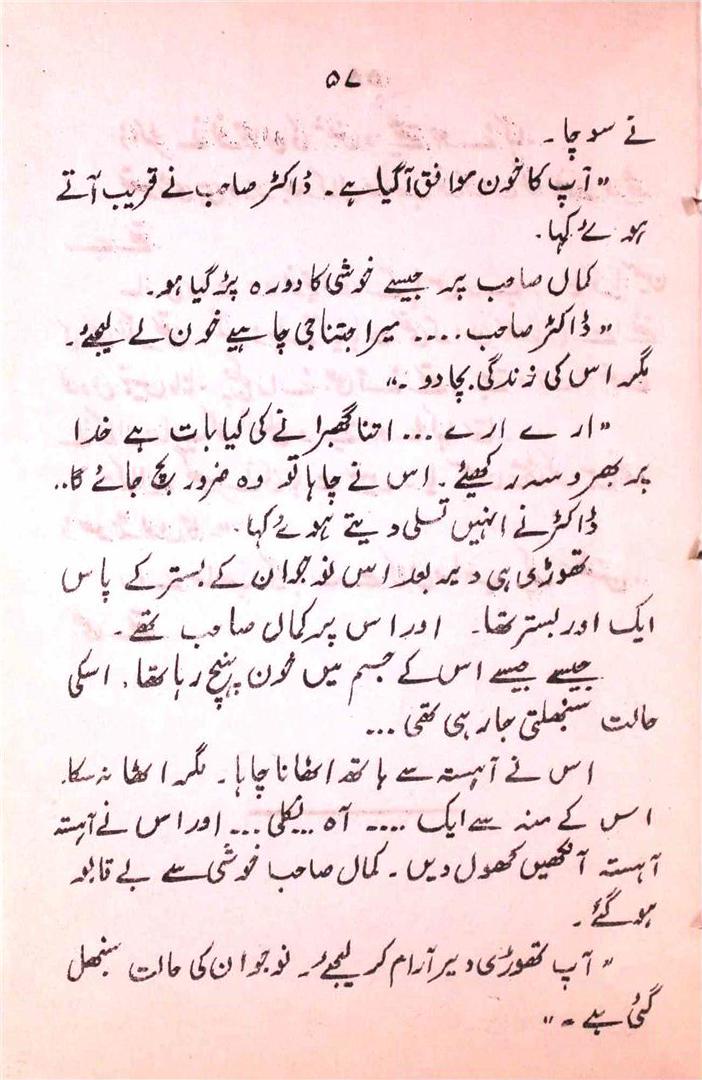 ۵۷
نے سوچا۔
"آپ کا خون موافق آگیا ہے۔ ڈاکٹر صاحب نے قریب آتے
ہوئے کہا۔
کمال صاحب پر جیسے خوشی کا دورہ پڑ گیا ہو۔
"ڈاکٹر صاحب.... میرا جتنا جی چاہیے خون لے لیجئے۔
مگر اس کی زندگی بچا دو۔"
"ارے ارے... اتنا گھبرانے کی کیا بات ہے خدا
پر بھروسہ رکھیئے۔ اس نے چاہا تو وہ ضرور بچ جائے گا..
ڈاکٹر نے انہیں تسلی دیتے ہوئے کہا۔
تھوڑی ہی دیر بعد اس نوجوان کے بستر کے پاس
ایک اور بستر تھا۔ اور اس پر کمال صاحب تھے۔
جیسے جیسے اس کے جسم میں خون پہنچ رہا تھا۔ اسکی
حالت سنبھلتی جا رہی تھی...
اس نے آہستہ سے ہاتھ اٹھانا چاہا۔ مگر اٹھا نہ سکا۔
اس کے منہ سے ایک .... آہ ... نکلی... اور اس نے آہستہ
آہستہ آنکھیں کھول دیں۔ کمال صاحب خوشی سے بے قابو
ہو گئے۔
"آپ تھوڑی دیر آرام کر لیجئے۔ نوجوان کی حالت سنبھل
گئی ہے۔"